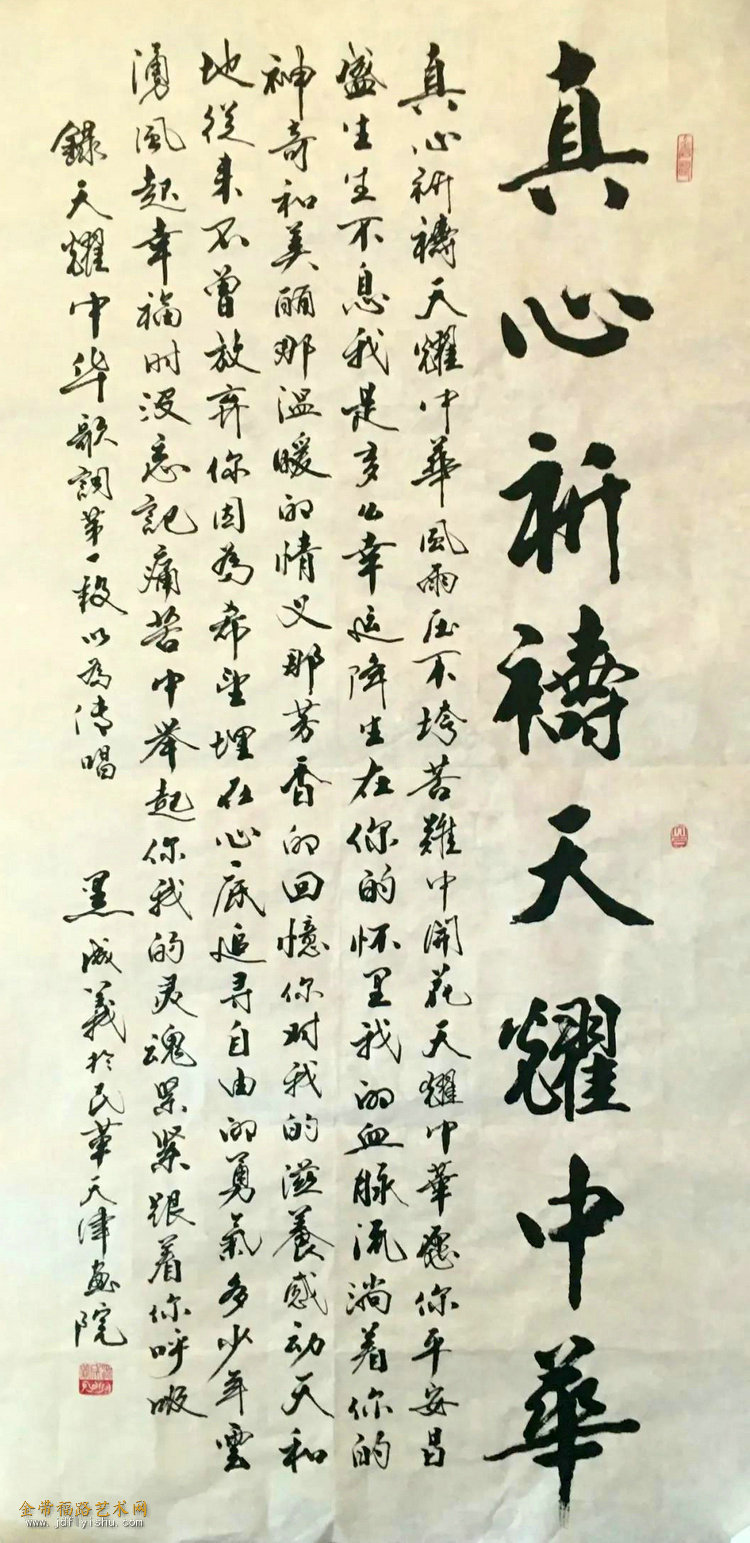 真心祈禱天耀中華
真心祈禱天耀中華風雨压不垮苦難中開花天耀中華愿你平安昌
盛生生不息我是多么幸运降生在你的怀里我的血脉流淌着你的
神奇和美丽那温暖的情义那芳香的回憶你对我的滋養感动天和
地從来不曾放弃你因為希望埋在心底追寻自由的勇氣多少年雲
湧風起幸福时没忘記痛苦中举起你我的灵魂紧紧跟着你呼吸
錄天耀中华歌詞第一段以為传唱 黑成義於民革天津画院
金带福路艺术网
www.jdflyishu.com